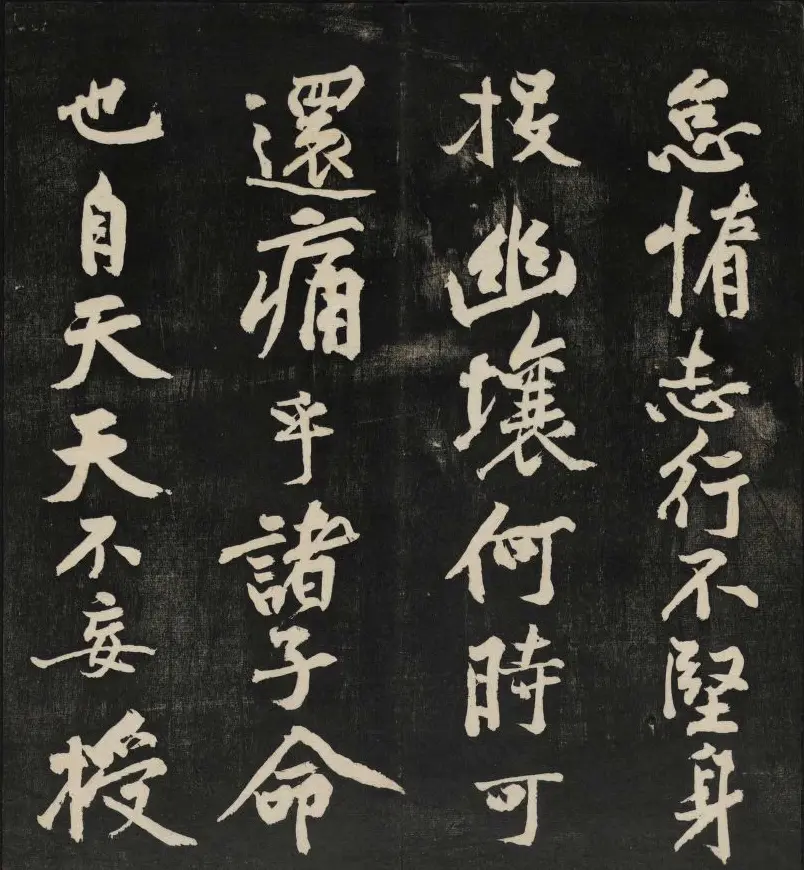 怠惰志行不堅身
投幽壤何時可
還痛乎諸子命
也自天天不妄授